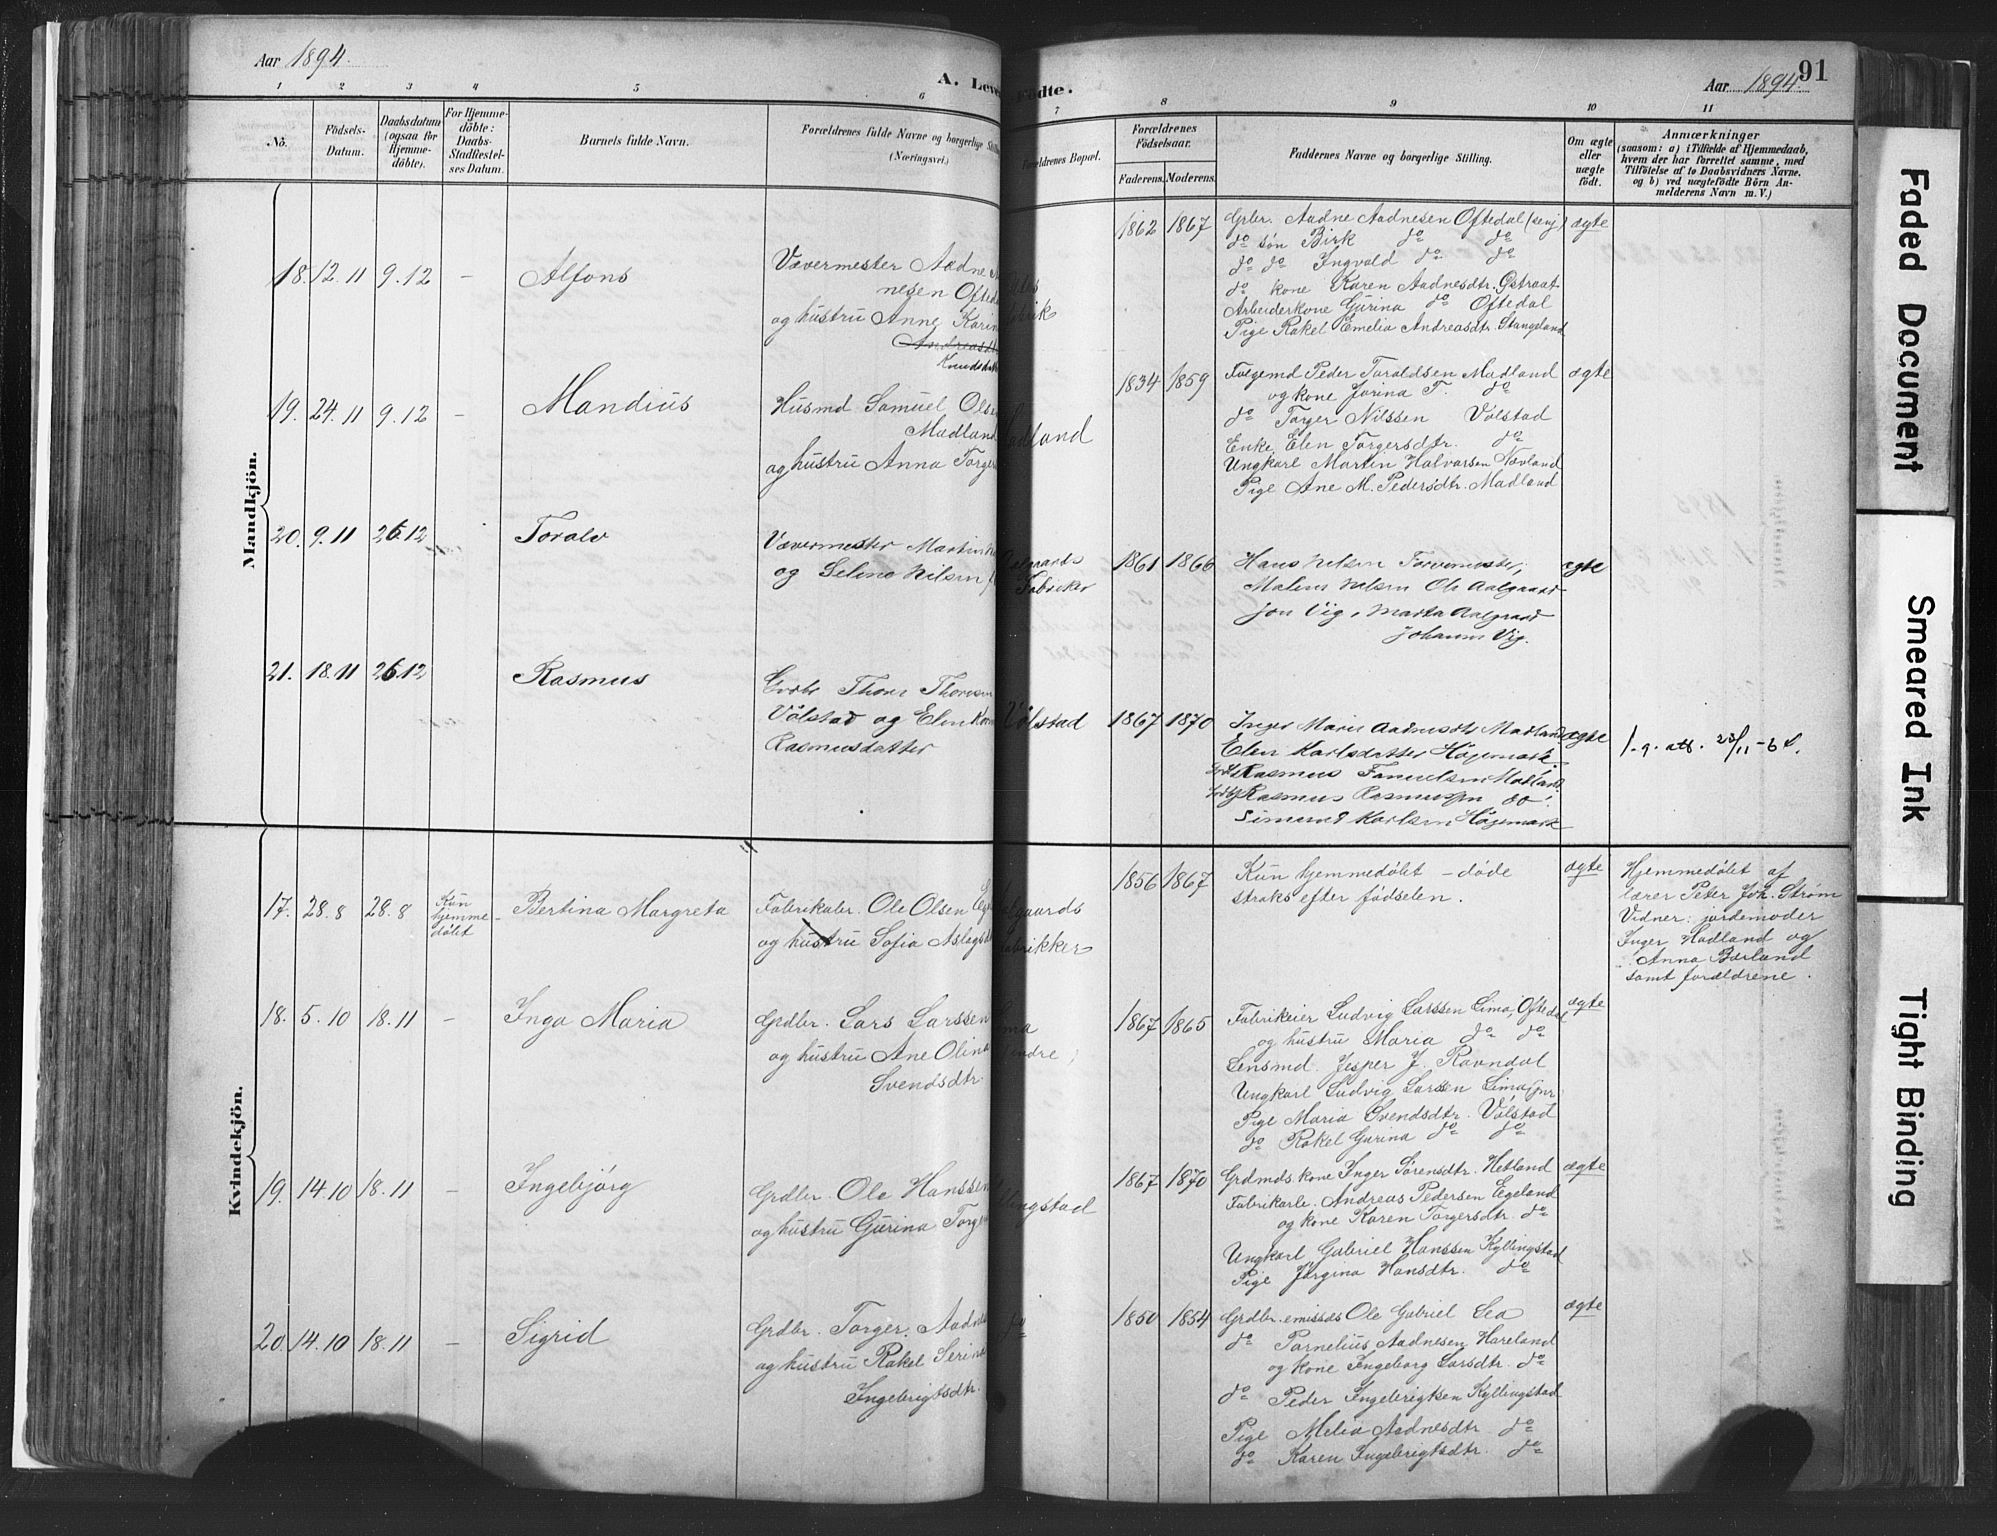 Aar 1894.
A. Leve
Födte.
Aar 1894.
91
1 2 3 4 5 6
7 8 9 10 11
No.
Födsels-
Datum.
Daabsdatum
(ogsaa for
Hjemme-
döbte).
For Hjemme-
döbte:
Daabs-
Stadfæstel-
ses Datum.
Barnets fulde Navn.
Forældrenes fulde Navne og borgerlige Stilling
(Næringsvei.)
Forældrenes Bopæl.
Forældrenes
Födselsaar.
Faderens. Moderens.
Faddernes Navne og borgerlige Stilling.
Om ægte
eller
uægte
födt.
Anmærkninger
(saasom: a) i Tilfælde af Hjemmedaab,
hvem der har forrettet samme, med
Tilföielse af to Daabsvidners Navne.
og b) ved uægtefödte Börn An-
melderens Navn m. V.)
Mandkjön.
18. 12.11 9.12 - Alfons
Vævermester Aadne
nesen Ofted
og hustru Anne Karin
Andreasd
Knudsdat
1862 1867
Grbr. Aadne Aadnesen Oftedal (senj)
do søn Birk do do
do do Ingvald do do
do kone Karen Aadnesdtr. Østraat
Arbeiderkone Gurina do Oftedal
Pige Rakel Emelia Andreasdtr. Stangeland
ægte
19. 24.11 9.12 - Mandius
Husmd Samuel Olse
Madland
og hustru Anna Torger
adland
1834 1859
Folgemd Peder Taraldsen Madland
og kone Jorina T. do
do Torger Nilssen Vølstad
Enke Elen Torgersdtr. do
Ungkarl Martin Halvorsen Nævland
Pige Ane M. Pedersdtr. Madland
ægte
20. 9.11 26.12 Toralv
Vævermester Martin
og Seline Nilsen
Aalgaards
Fabriker
1861 1866
Hans Nilsen Farvemester,
Malene Nilsen Ole Aalgaard
Jon Vig, Marta Aalgaard
Johanna Vig.
ægte
21. 18.11 26.12 Rasmus
Grdbr Thore Thoresen
Vølstad og Elen Kar
Rasmusdatter
Vølstad
1867 1870
Inger Marie Aadnesdtr Madland
Elen Karlsdatter Høgemark
Grdbr Rasmus Samuelsen Madland
Grdbr Rasmus Rasmussen do
Simund Karlsen Høgemark
ægte
1.g. att. 23/11-6
Kvindekjön.
17. 28.8 28.8
Kun
hjemme-
døbt
Bertina Margreta
Fabrikabr. Ole Olsen
og hustru Sofia Aslagsd
algaards
abrikker
1856 1867
Kun hjemmedøbt - døde
straks efter fødselen.
ægte
Hjemmedøbt af
lærer Peter Joh. Strøm
Vidner: jordemoder
Inger Hadland og
Anna Bærland
samt forældrene.
18. 5.10 18.11 - Inga Maria
Grdbr. Lars Larssen
og hustru Ane Olina
Svendsdtr.
ima
(indre)
1867 1865
Fabrikeier Ludvig Larssen Lima, Oftedal
og hustru Maria do do
Lensmd. Jesper J. Ravndal
Ungkarl Ludvig Larssen Lima jnr
Pige Maria Svendsdtr. Vølstad
do Rakel Gurina do do
ægte
19. 14.10 18.11 - Ingebjørg
Grdbr. Ole Hanssen
og hustru Gurina Torg
lingstad
1867 1870
Grdmds kone Inger Sørensdtr. Hetland
Fabrikarb. Andreas Pedersen Egeland
og kone Karen Torgersdtr. do
Ungkarl Gabriel Hanssen Kyllingstad
Pige Jørgina Hansdtr. do
ægte
20. 14.10 18.11 - Sigrid
Grdbr. Torger Aadn
og hustru Rakel Serin
Ingebrigtsdtr.
do
1850 1854
Grdbr. emissæs Ole Gabriel Lea
do Pornelius Aadnesen Hareland
og kone Ingeborg Larsdtr. do
do Peder Ingebrigtsen Kyllingstad
Pige Melia Aadnesdtr do
do Karen Ingebrigtsdtr. do
ægte
Faded Document
Smeared Ink
Tight Binding